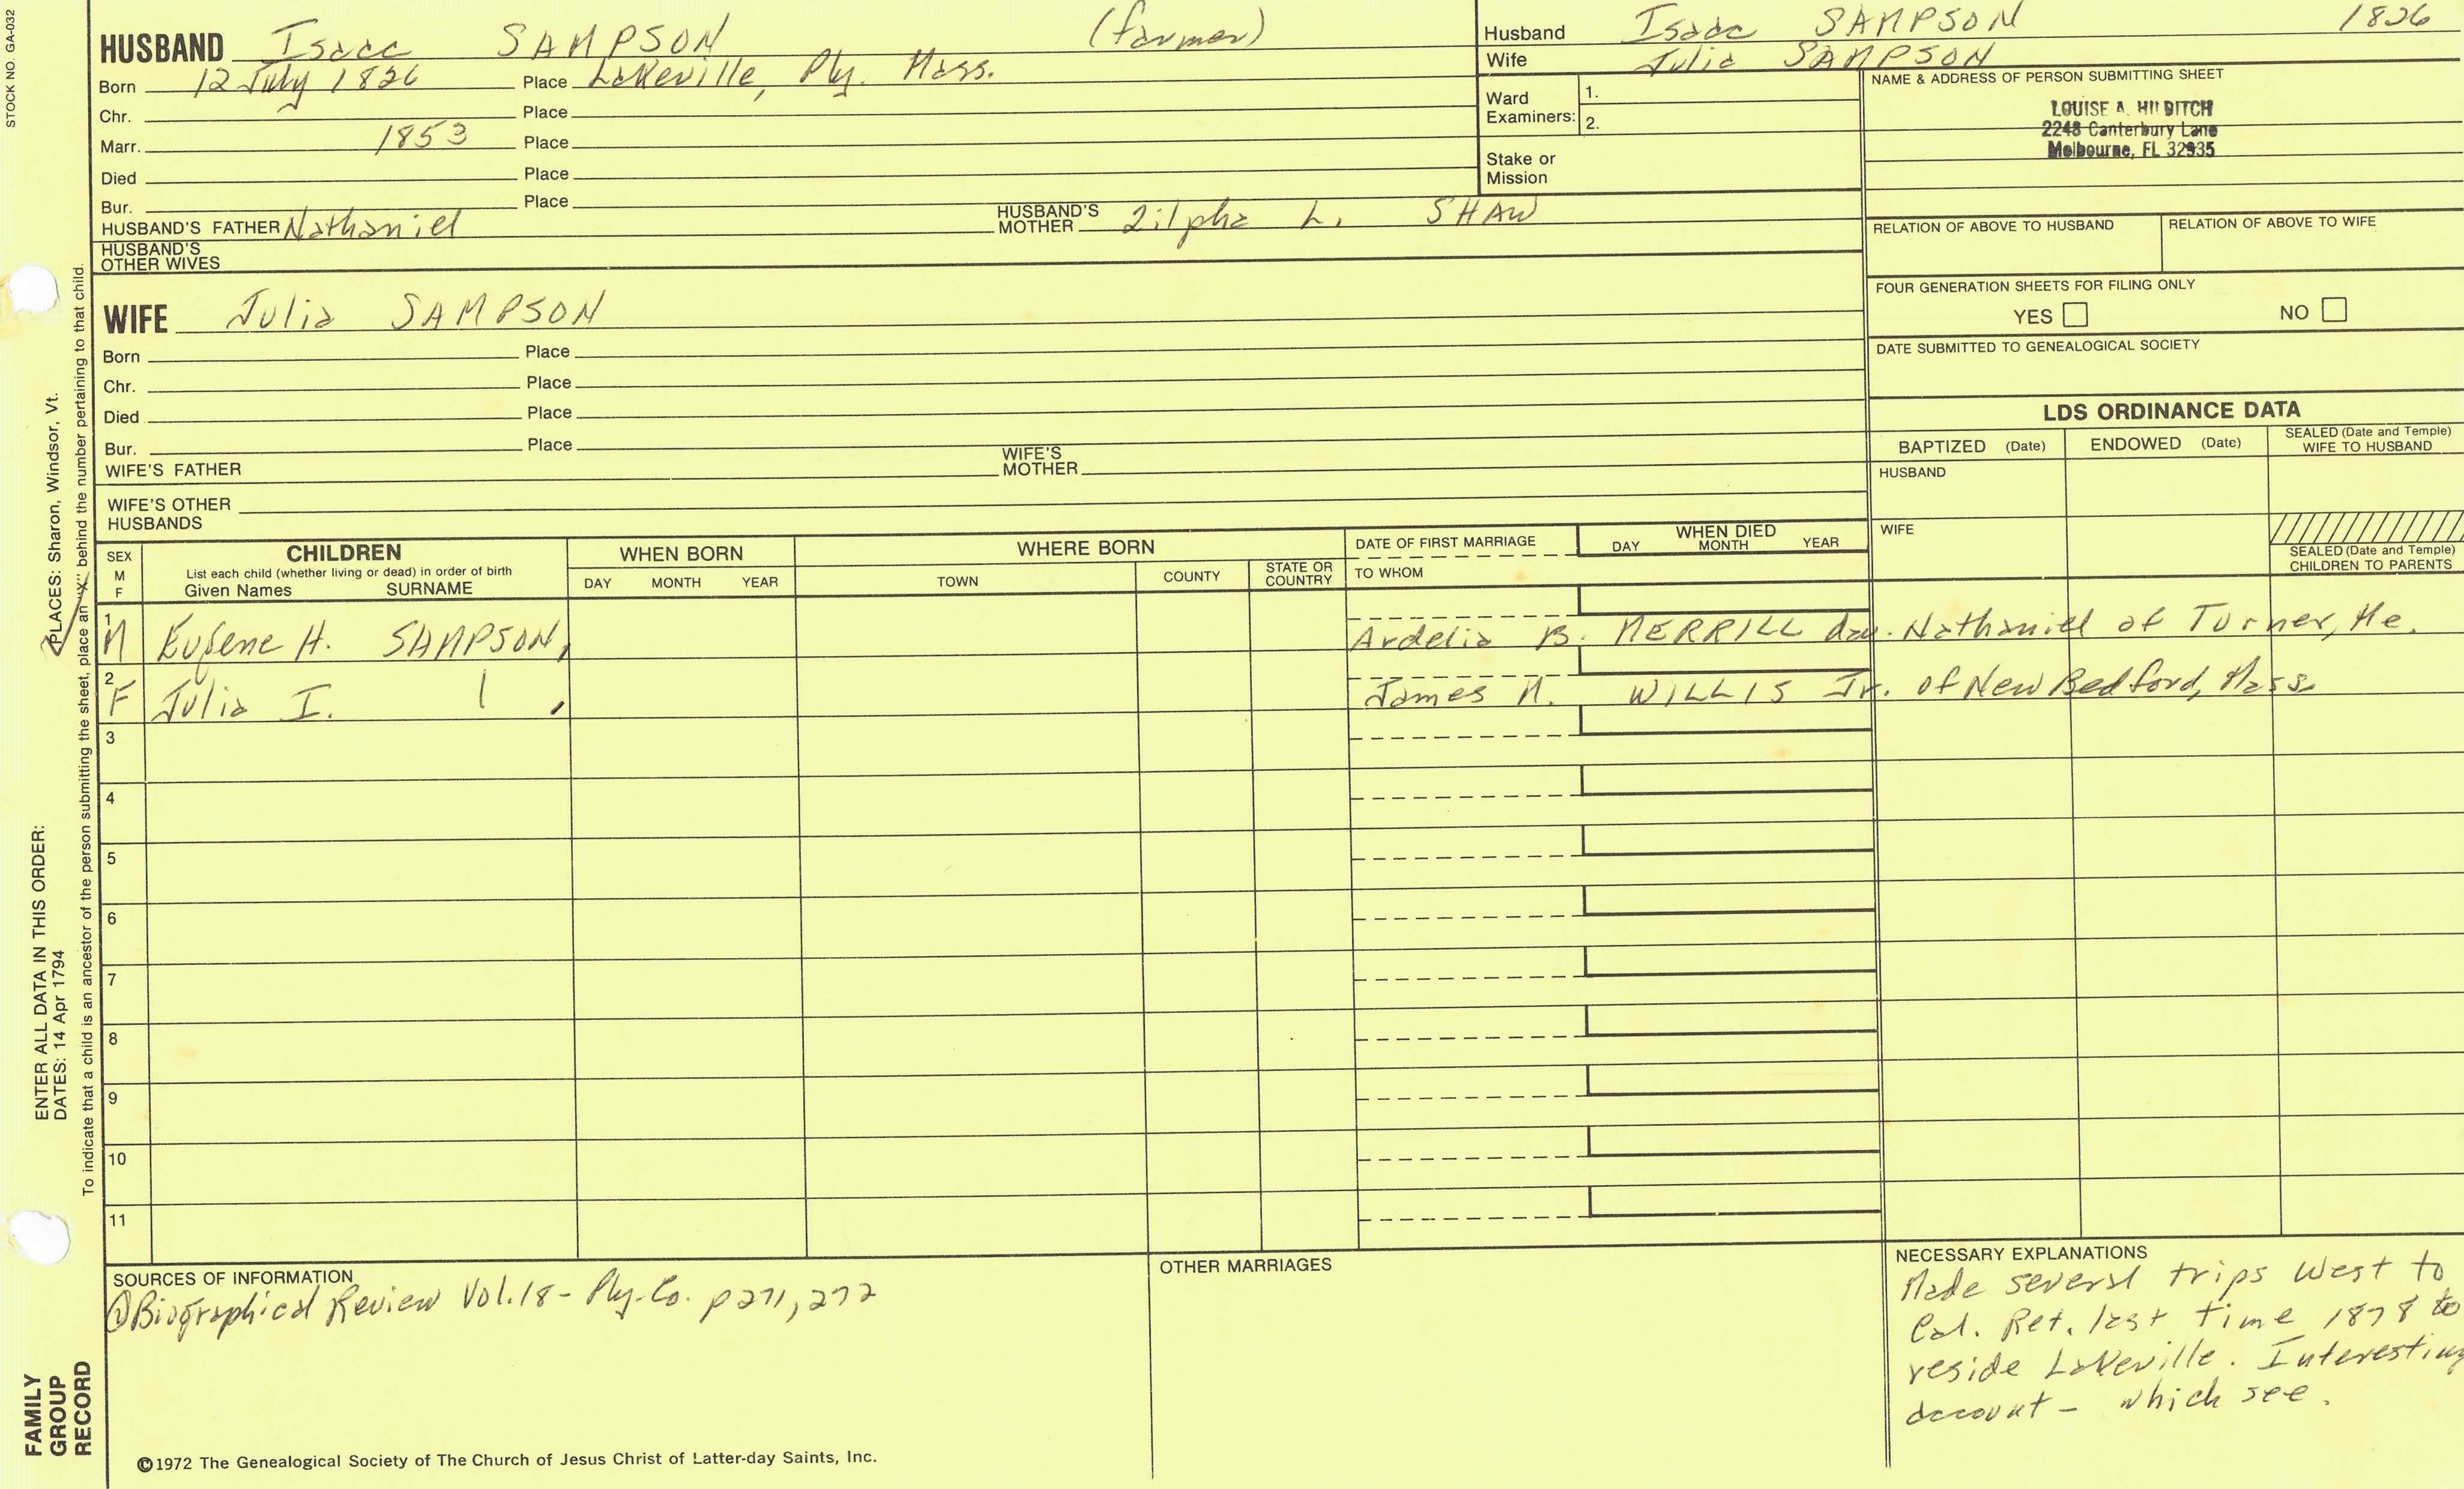 STOCK NO. GA-032
HUSBAND Isaac SAMPSON (farmer)
Born 12 July 1826 Place Lakeville, Ply. Mass.
Chr. Place
Marr. 1853 Place
Died Place
Bur. Place
HUSBAND'S FATHER Nathaniel HUSBAND'S MOTHER Zilpha L. SHAW
HUSBAND'S OTHER WIVES
Husband Isaac SAMPSON 1826
Wife Julia SAMPSON
Ward Examiners: 1.
2.
Stake or Mission
NAME & ADDRESS OF PERSON SUBMITTING SHEET
LOUISE A. HILDITCH
2248 Canterbury Lane
Melbourne, FL 32935
RELATION OF ABOVE TO HUSBAND RELATION OF ABOVE TO WIFE
FOUR GENERATION SHEETS FOR FILING ONLY
YES NO
DATE SUBMITTED TO GENEALOGICAL SOCIETY
WIFE Julia SAMPSON
Born Place
Chr. Place
Died Place
Bur. Place
WIFE'S FATHER WIFE'S MOTHER
WIFE'S OTHER HUSBANDS
LDS ORDINANCE DATA
BAPTIZED (Date) ENDOWED (Date) SEALED (Date and Temple) WIFE TO HUSBAND
HUSBAND
WIFE
SEALED (Date and Temple) CHILDREN TO PARENTS
SEX M F
CHILDREN
List each child (whether living or dead) in order of birth
Given Names SURNAME
WHEN BORN
DAY MONTH YEAR
WHERE BORN
TOWN COUNTY STATE OR COUNTRY
DATE OF FIRST MARRIAGE
TO WHOM
WHEN DIED
DAY MONTH YEAR
1 M Eugene H. SAMPSON, Ardelia B. MERRILL dau. Nathaniel of Turner, Me.
2 F Julia I. , James M. WILLIS Jr. of New Bedford, Mass
3
4
5
6
7
8
9
10
11
SOURCES OF INFORMATION
① Biographical Review Vol. 18 - Ply. Co. p 271, 272
OTHER MARRIAGES
NECESSARY EXPLANATIONS
Made several trips West to
Cal. Ret. last time 1878 to
reside Lakeville. Interesting
account - which see.
©1972 The Genealogical Society of The Church of Jesus Christ of Latter-day Saints, Inc.
FAMILY
GROUP
RECORD
ENTER ALL DATA IN THIS ORDER:
DATES: 14 Apr 1794 PLACES: Sharon, Windsor, Vt.
To indicate that a child is an ancestor of the person submitting the sheet, place an "X" behind the number pertaining to that child.